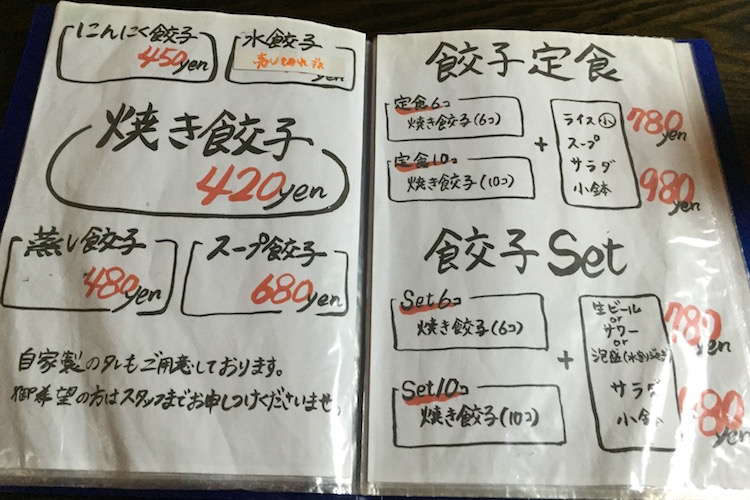 にんにく餃子
450yen
水餃子
yen
焼き餃子
420yen
蒸し餃子
480yen
スープ餃子
680yen
自家製のタレもご用意しております。
御希望の方はスタッフまでお申しつけくださいませ。
餃子定食
定食6コ
焼き餃子(6コ)
定食10コ
焼き餃子(10コ)
+
ライス小
スープ
サラダ
小鉢
780yen
980yen
餃子Set
Set6コ
焼き餃子(6コ)
Set10コ
焼き餃子(10コ)
+
生ビール
or
サワー
or
泡盛
サラダ
小鉢
780yen
80yen